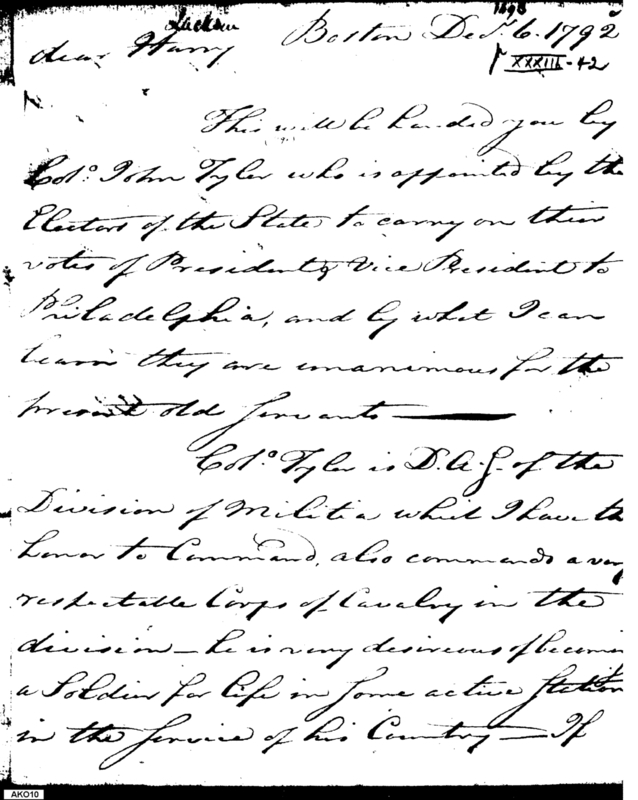 Jackson
1893
Boston Decr. 6. 1792
XXXIII-42
dear Harry
This will be handed you by
Colo. John Tyler who is appointed by the
Electors of the State to carry on their
votes of President & Vice President to
Philadelphia, and by what I can
learn they are unanimous for the
present old Servants —
Colo. Tyler is D. A. G. of the
Division of Militia which I have th
honor to Command, also commands a very
respectable Corps of Cavalry in the
division — he is very desireous of becomin
a Soldier for life in some active Station
in the Service of his Country — If
AKO10